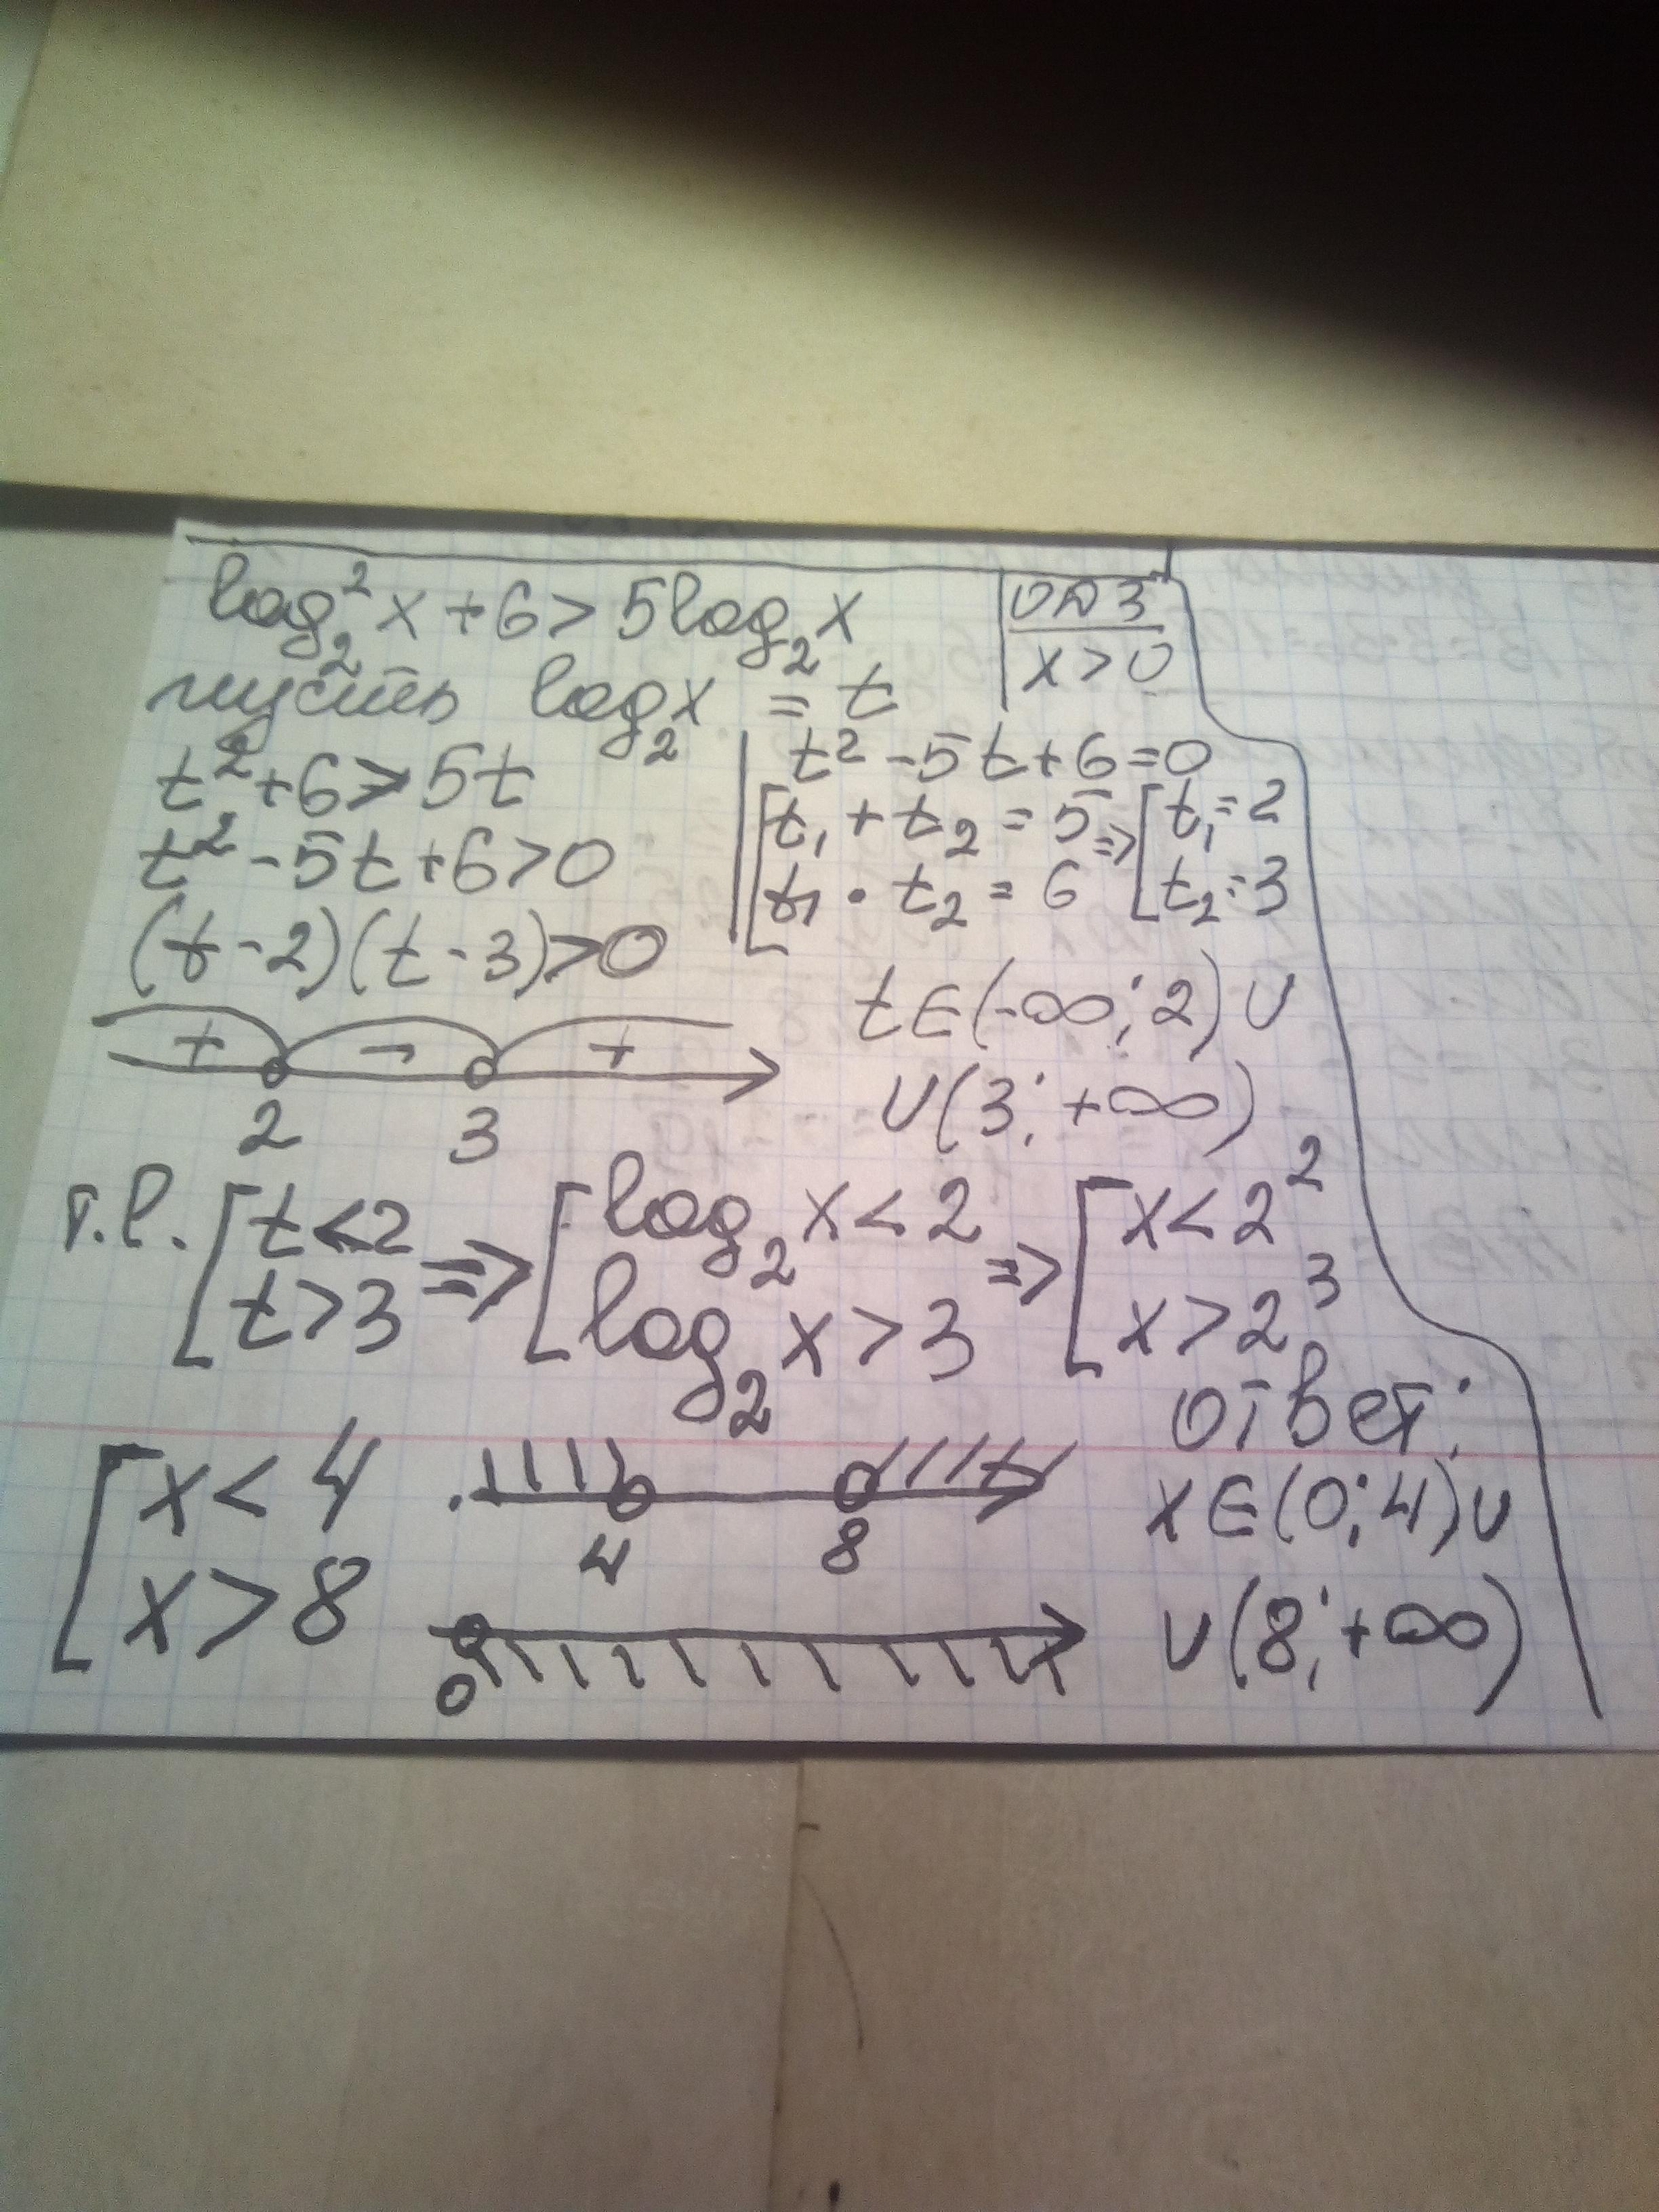 log₂²x + 6 > 5log₂x
ОДЗ
x > 0
пусть log₂x = t
t² + 6 > 5t
t² - 5t + 6 > 0
(t - 2)(t - 3) > 0
t² - 5t + 6 = 0
[t₁ + t₂ = 5 => [t₁ = 2
t₁ · t₂ = 6 t₂ = 3
+ - +
2 3
t∈(-∞; 2) ∪
∪(3; +∞)
т.е. [t < 2 => [log₂x < 2 => [x < 2²
t > 3 log₂x > 3 x > 2³
[x < 4
x > 8
4 8
0
ответ:
x∈(0; 4) ∪
∪(8; +∞)